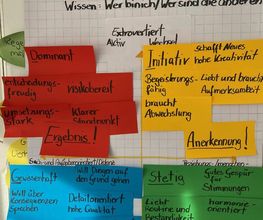 Wissen: Wer bin ich/Wer sind die anderen
Extrovertiert
Aktiv
Dominant
Initiativ
schafft Neues
hohe Kreativität
entscheidungs-
freudig
risikobereit
Begeisterungs-
fähig
Liebt und braucht
Aufmerksamkeit
braucht
Abwechslung
Umsetzungs-
stark
Klarer
Standpunkt
Ergebnis!
Anerkennung!
Gewissenhaft
Will Dingen auf
den Grund gehen
Stetig
Gutes Gespür
für
Stimmungen
Will über
Konsequenzen
Detailorientiert
hohe Qualität
Liebt
Routine und
Beständigkeit
harmonie-
orientiert